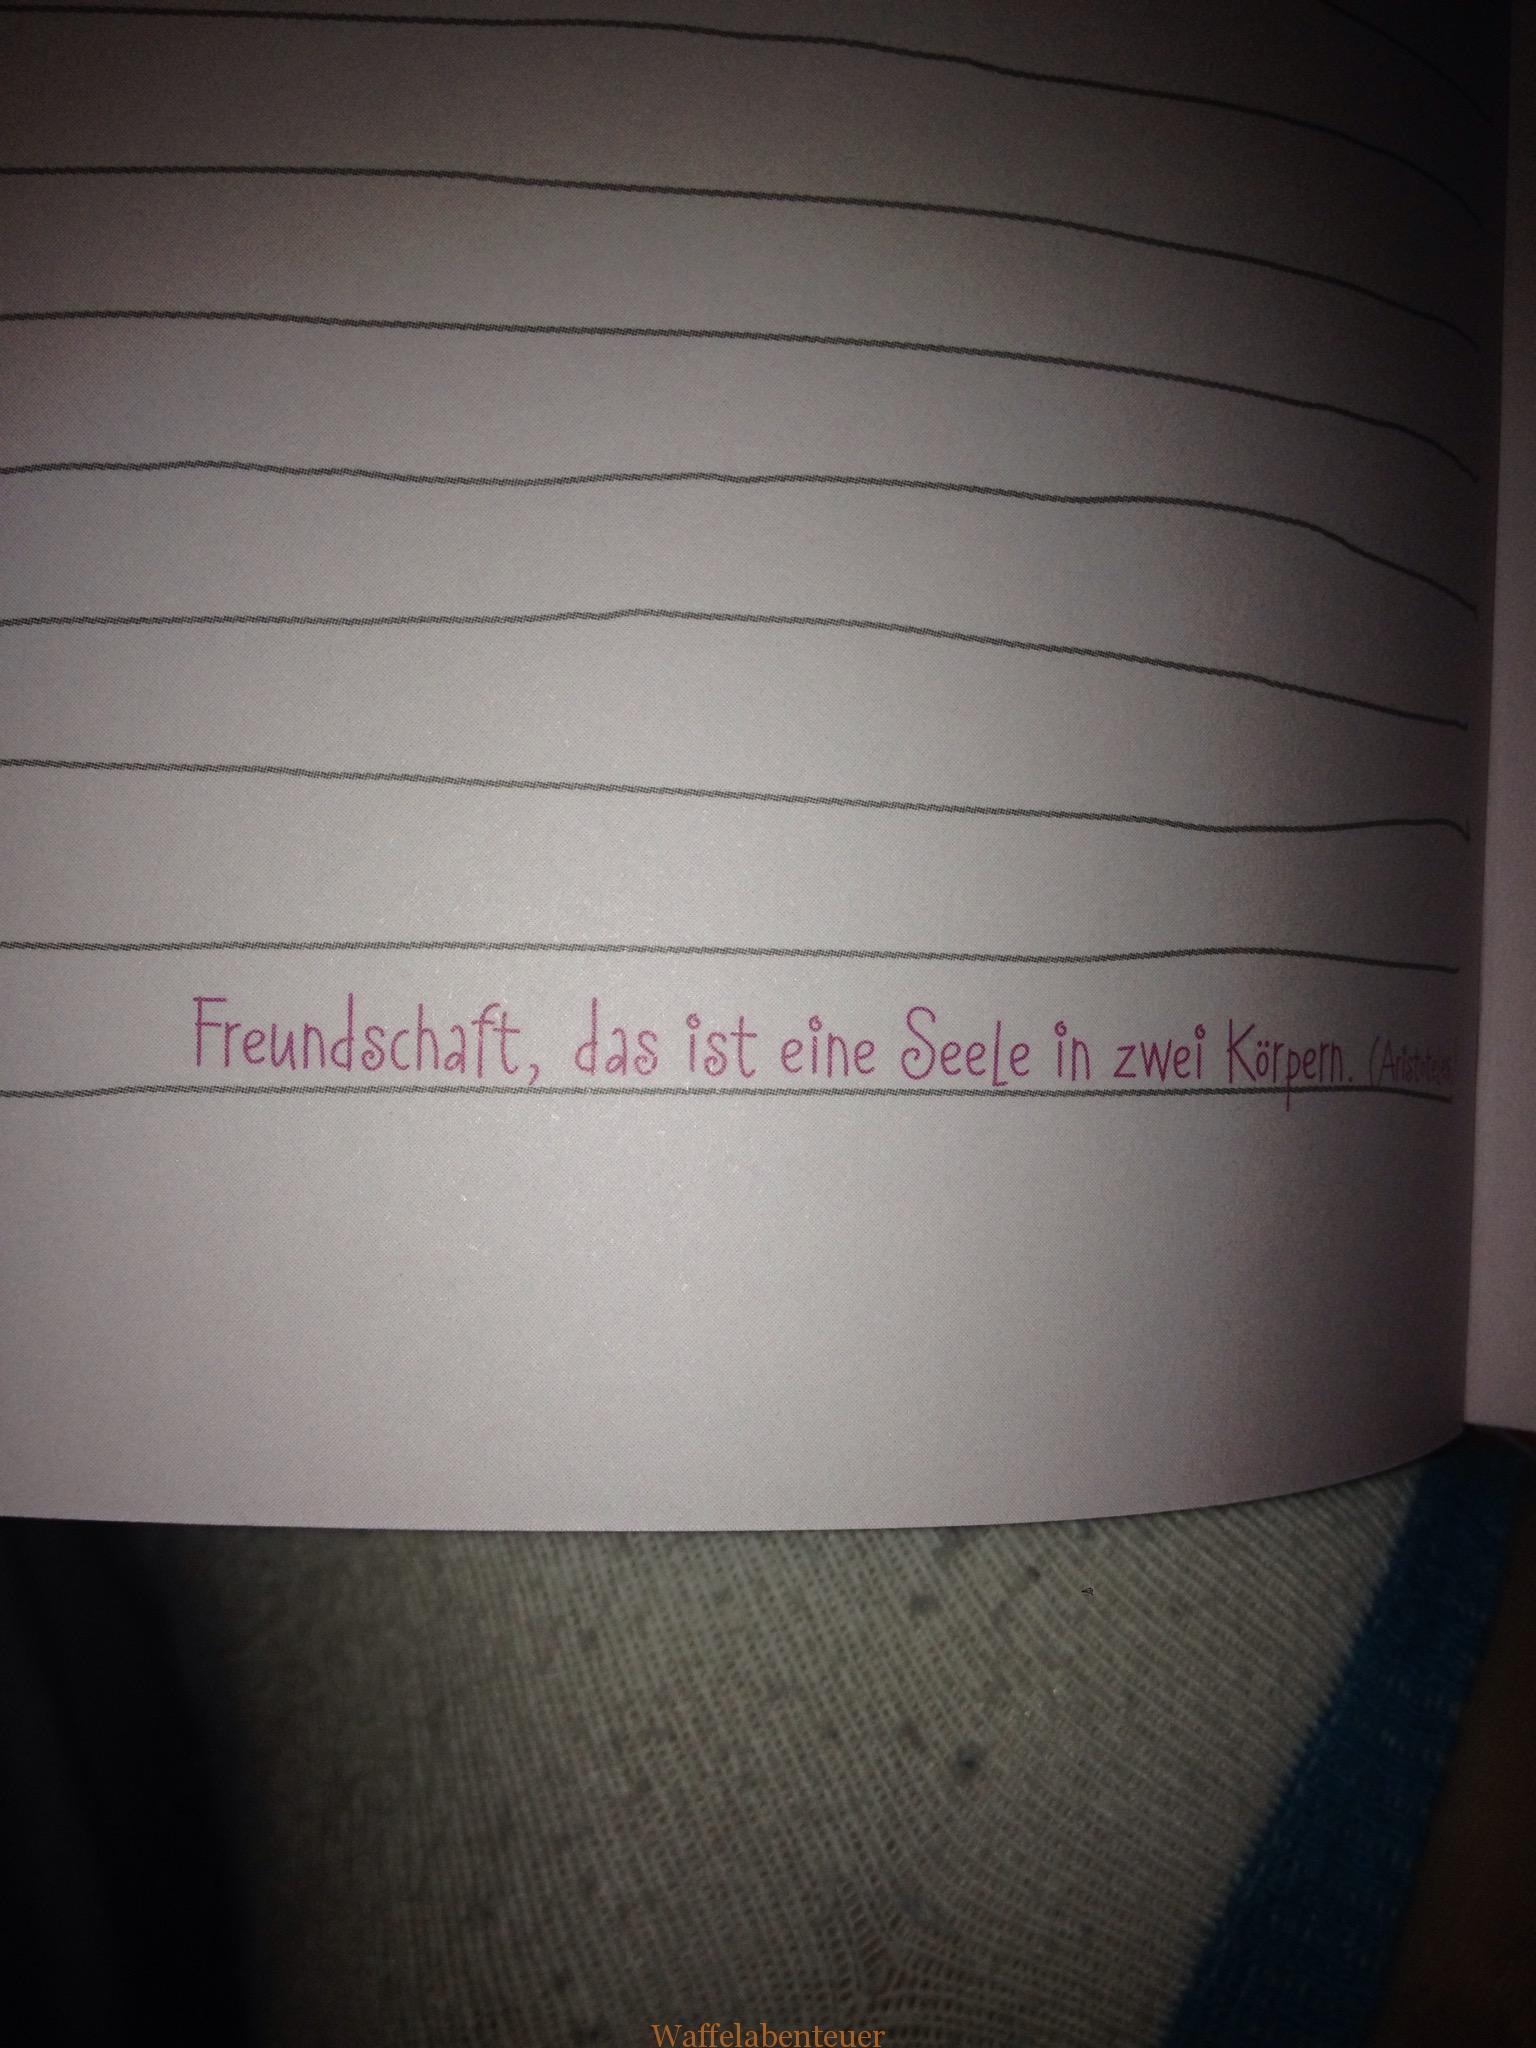 Freundschaft, das ist eine Seele in zwei Körpern. (Aristoteles
Waffelabenteuer